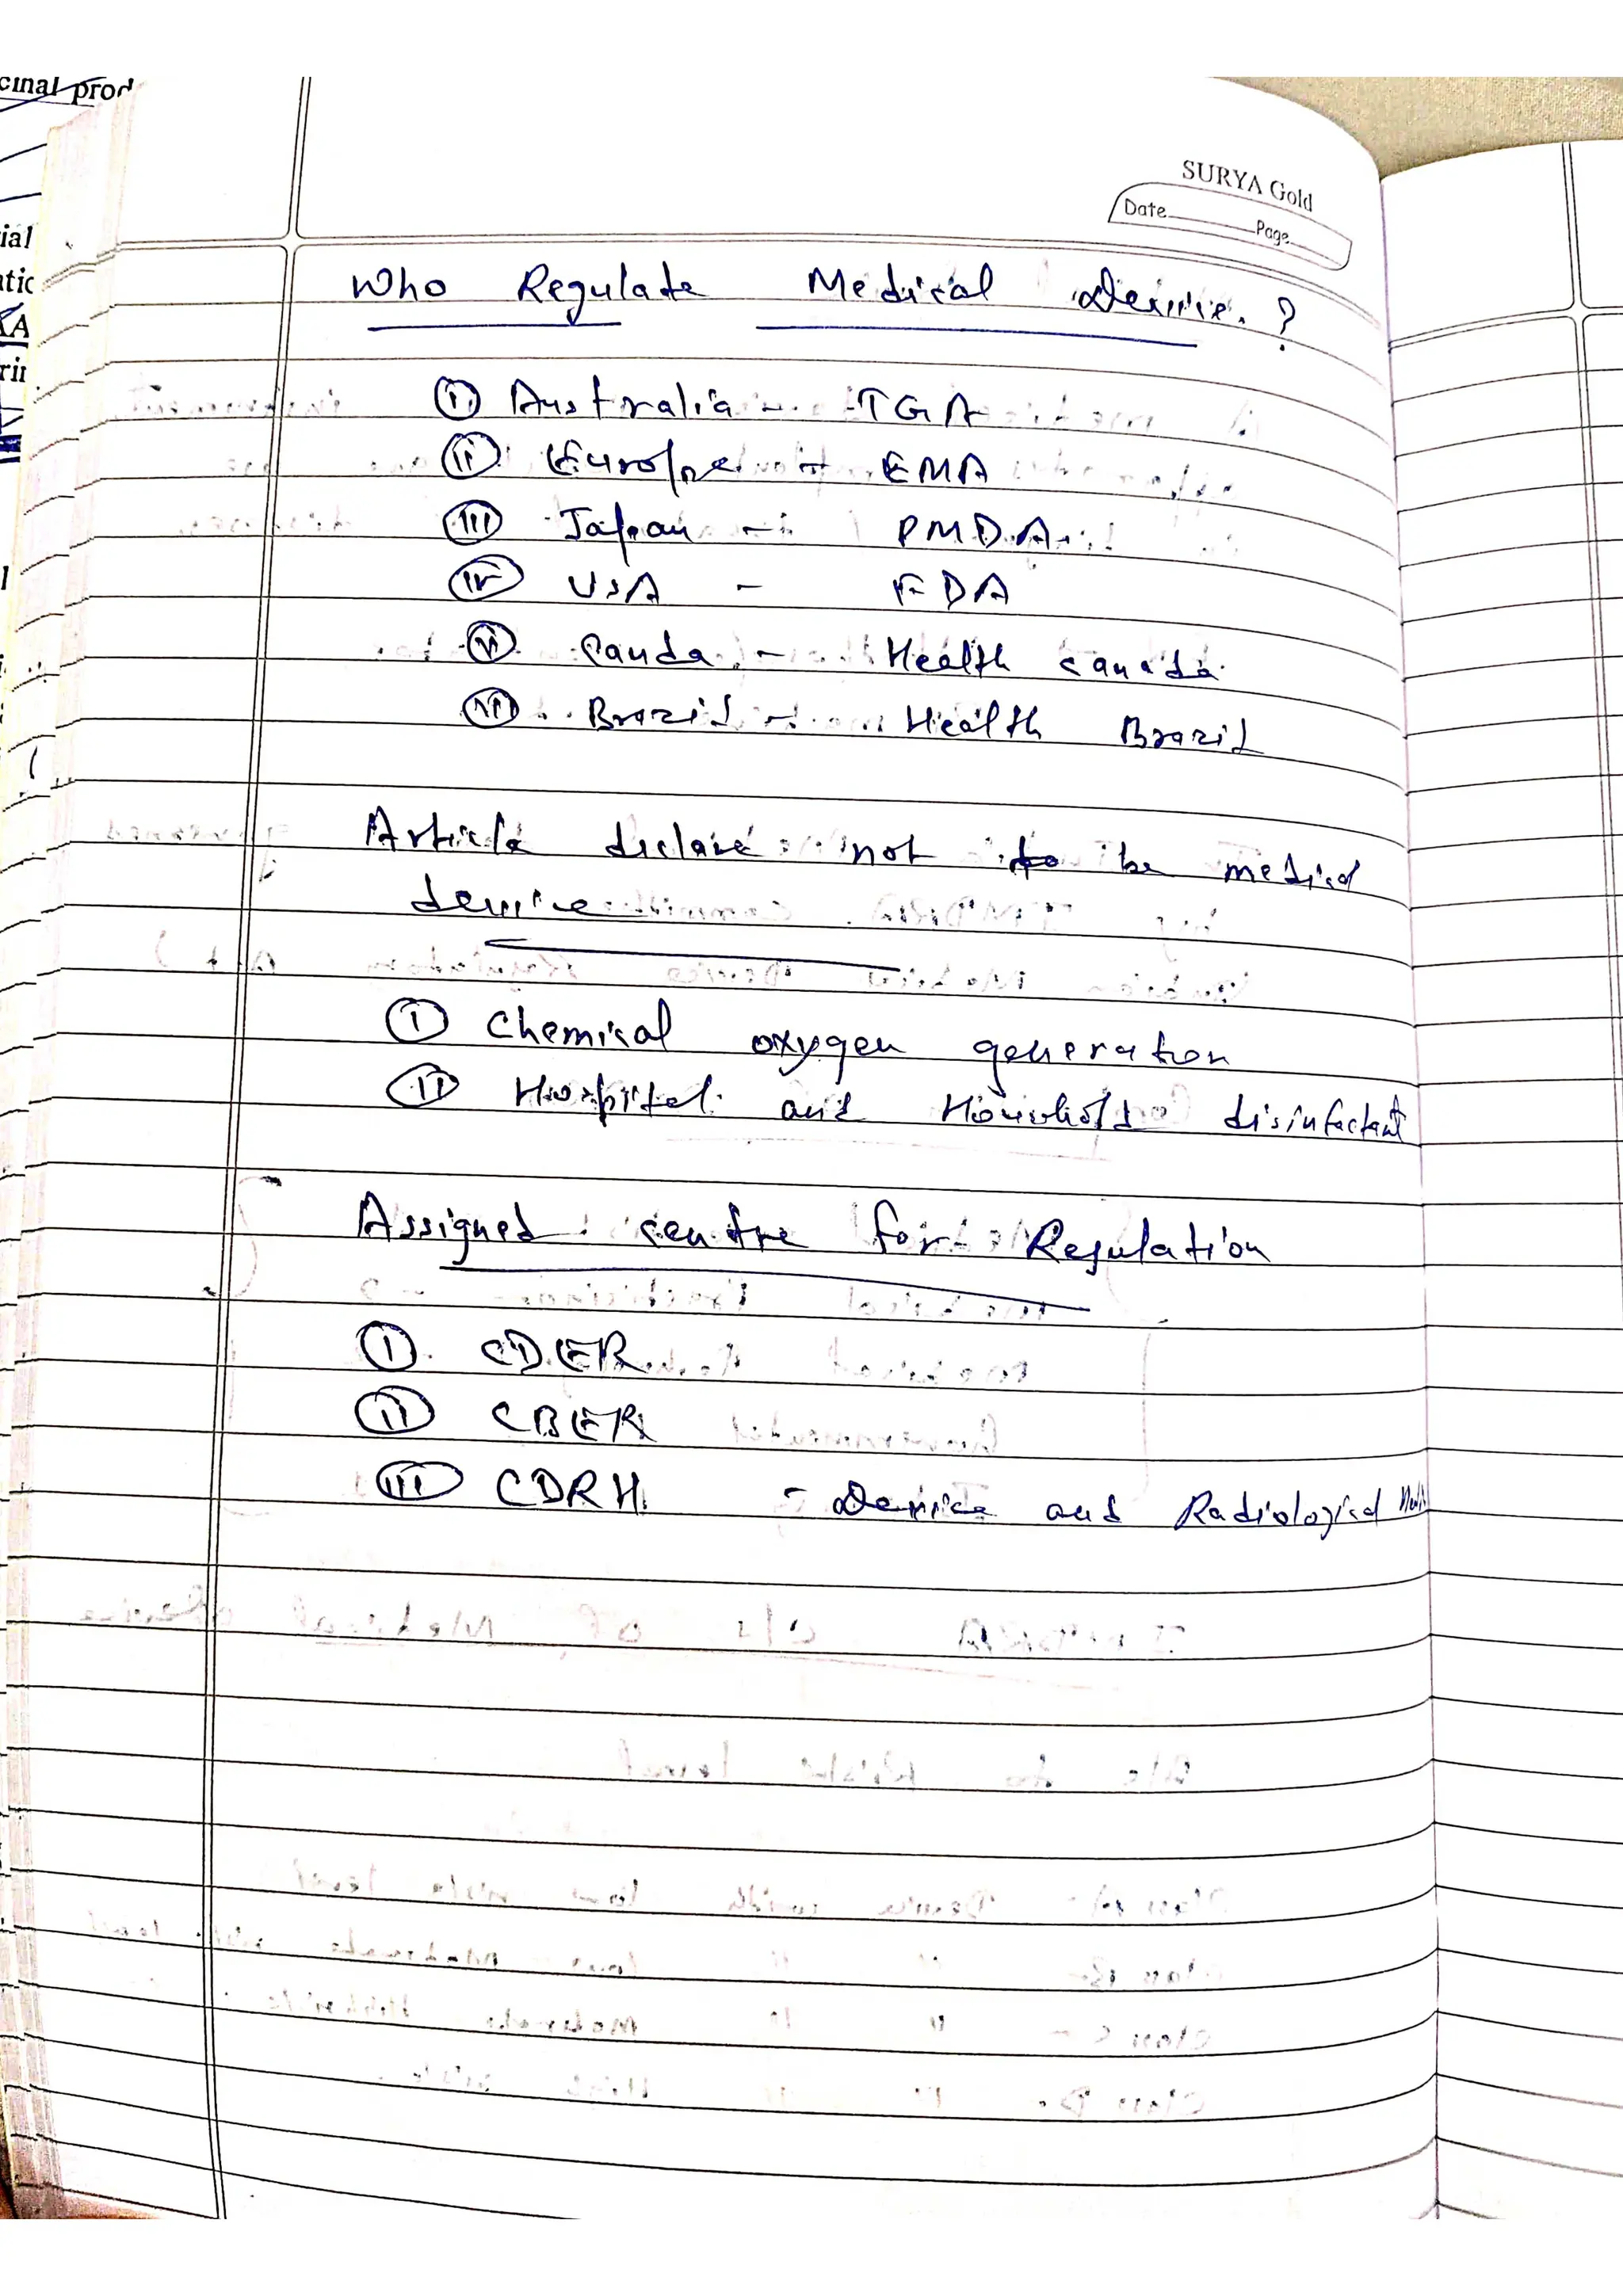 cinal prod
ial
tic
rin
SURYA Gold
Date
Page
Who Regulate Medical Device. ?
(i) Australia - TGA
(ii) Europe - EMA
(iii) Japan - PMDA
(iv) USA - FDA
(vi) Canda - Health canada
(vii) Brazil - Health Brazil
Article declare not to be medical
device
(i) Chemical oxygen generation
(ii) Hospital and Household disinfactant
Assigned centre for Regulation
(i) CDER
(ii) CBER
(iii) CDRH - Device and Radiological